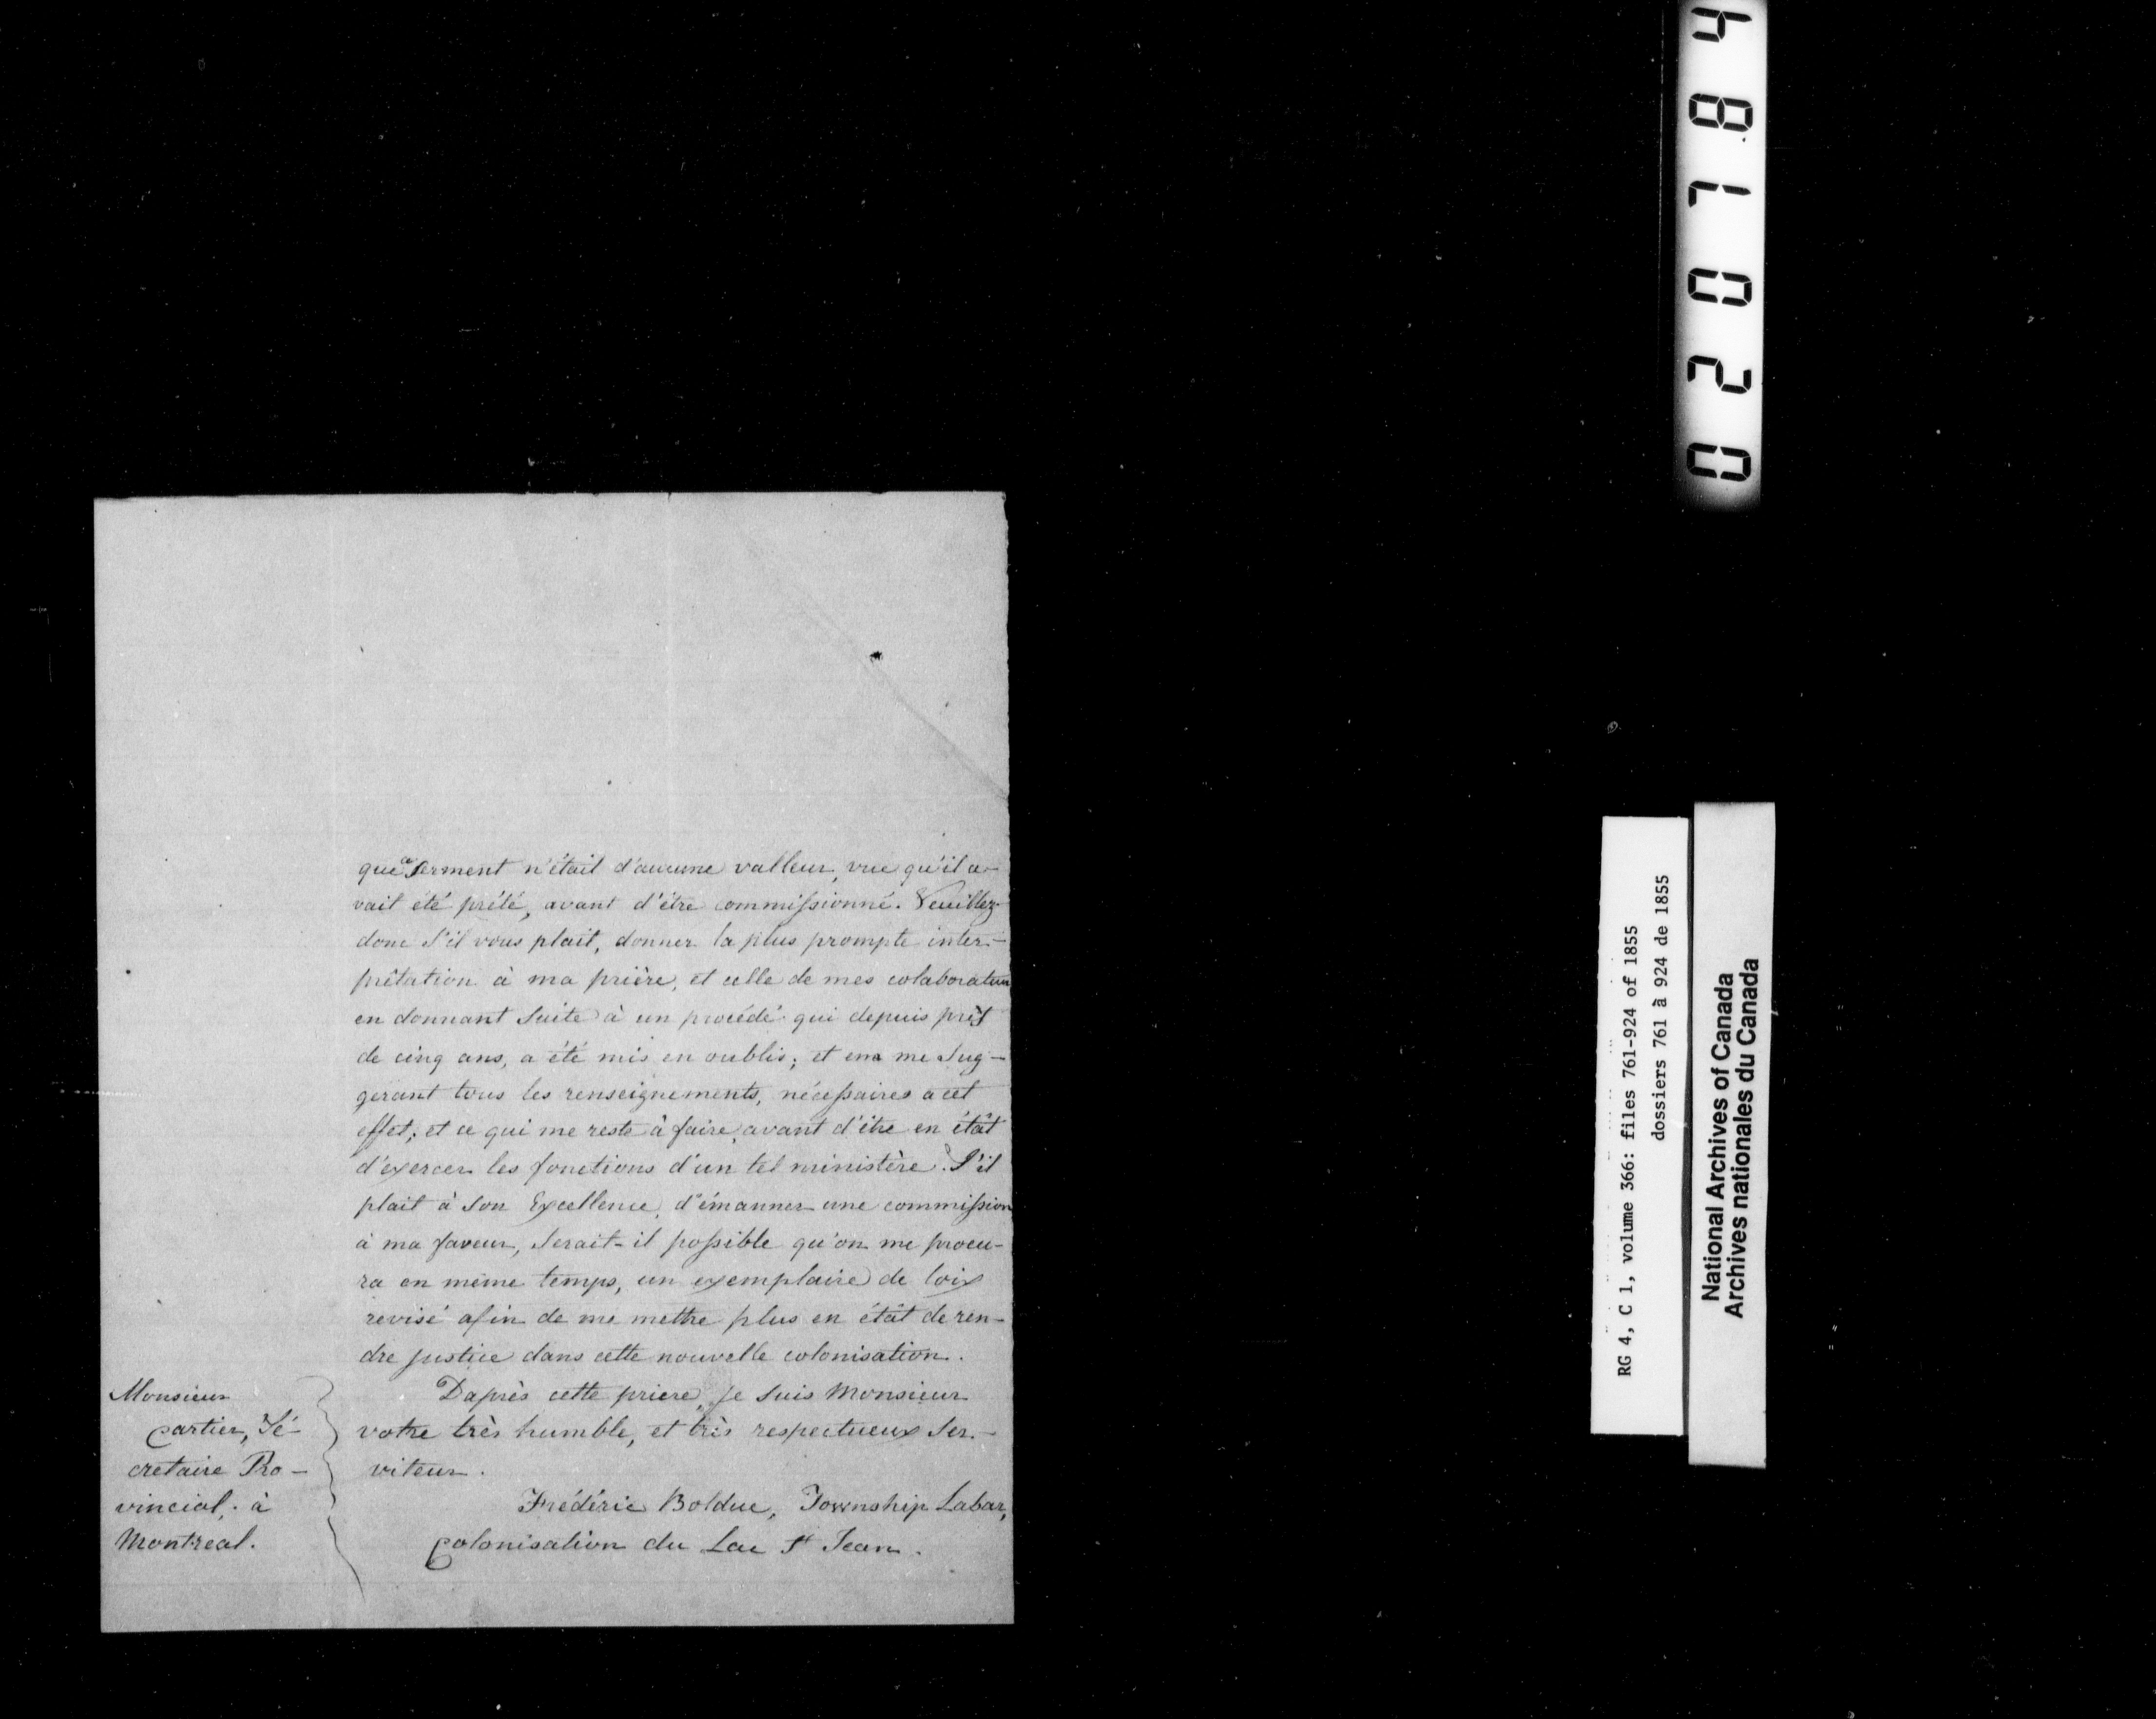 que ce serment n'était d'aucune valleur, vue qu'il a-
vait été prêté, avant d'être commissionné. Veuillez
donc s'il vous plait, donner la plus prompte inter-
prêtation à ma prière, et celle de mes colaborateurs
en donnant suite à un procédé qui depuis près
de cinq ans, a été mis en oublis; et en me sug-
gerant tous les renseignements, nécessaires a cet
effet; et ce qui me reste à faire, avant d'être en étât
d'éxercer les fonctions d'un tel ministère. S'il
plait à Son Excellence, d'émanner une commission
à ma faveur, serait-il possible qu'on me procu-
ra en même temps, un exemplaire de loix
revisé afin de me mettre plus en étât de ren-
dre justice dans cette nouvelle colonisation.
Daprès cette priere, je suis Monsieur
votre très humble, et très respectueux ser-
viteur.
Frédéric Bolduc, Township Labar,
Colonisation du Lac St Jean.
Monsieur
Cartier, Sé-
cretaire Pro-
vincial; à
Montreal.
020184
RG 4, C 1, volume 366: files 761-924 of 1855
dossiers 761 à 924 de 1855
National Archives of Canada
Archives nationales du Canada